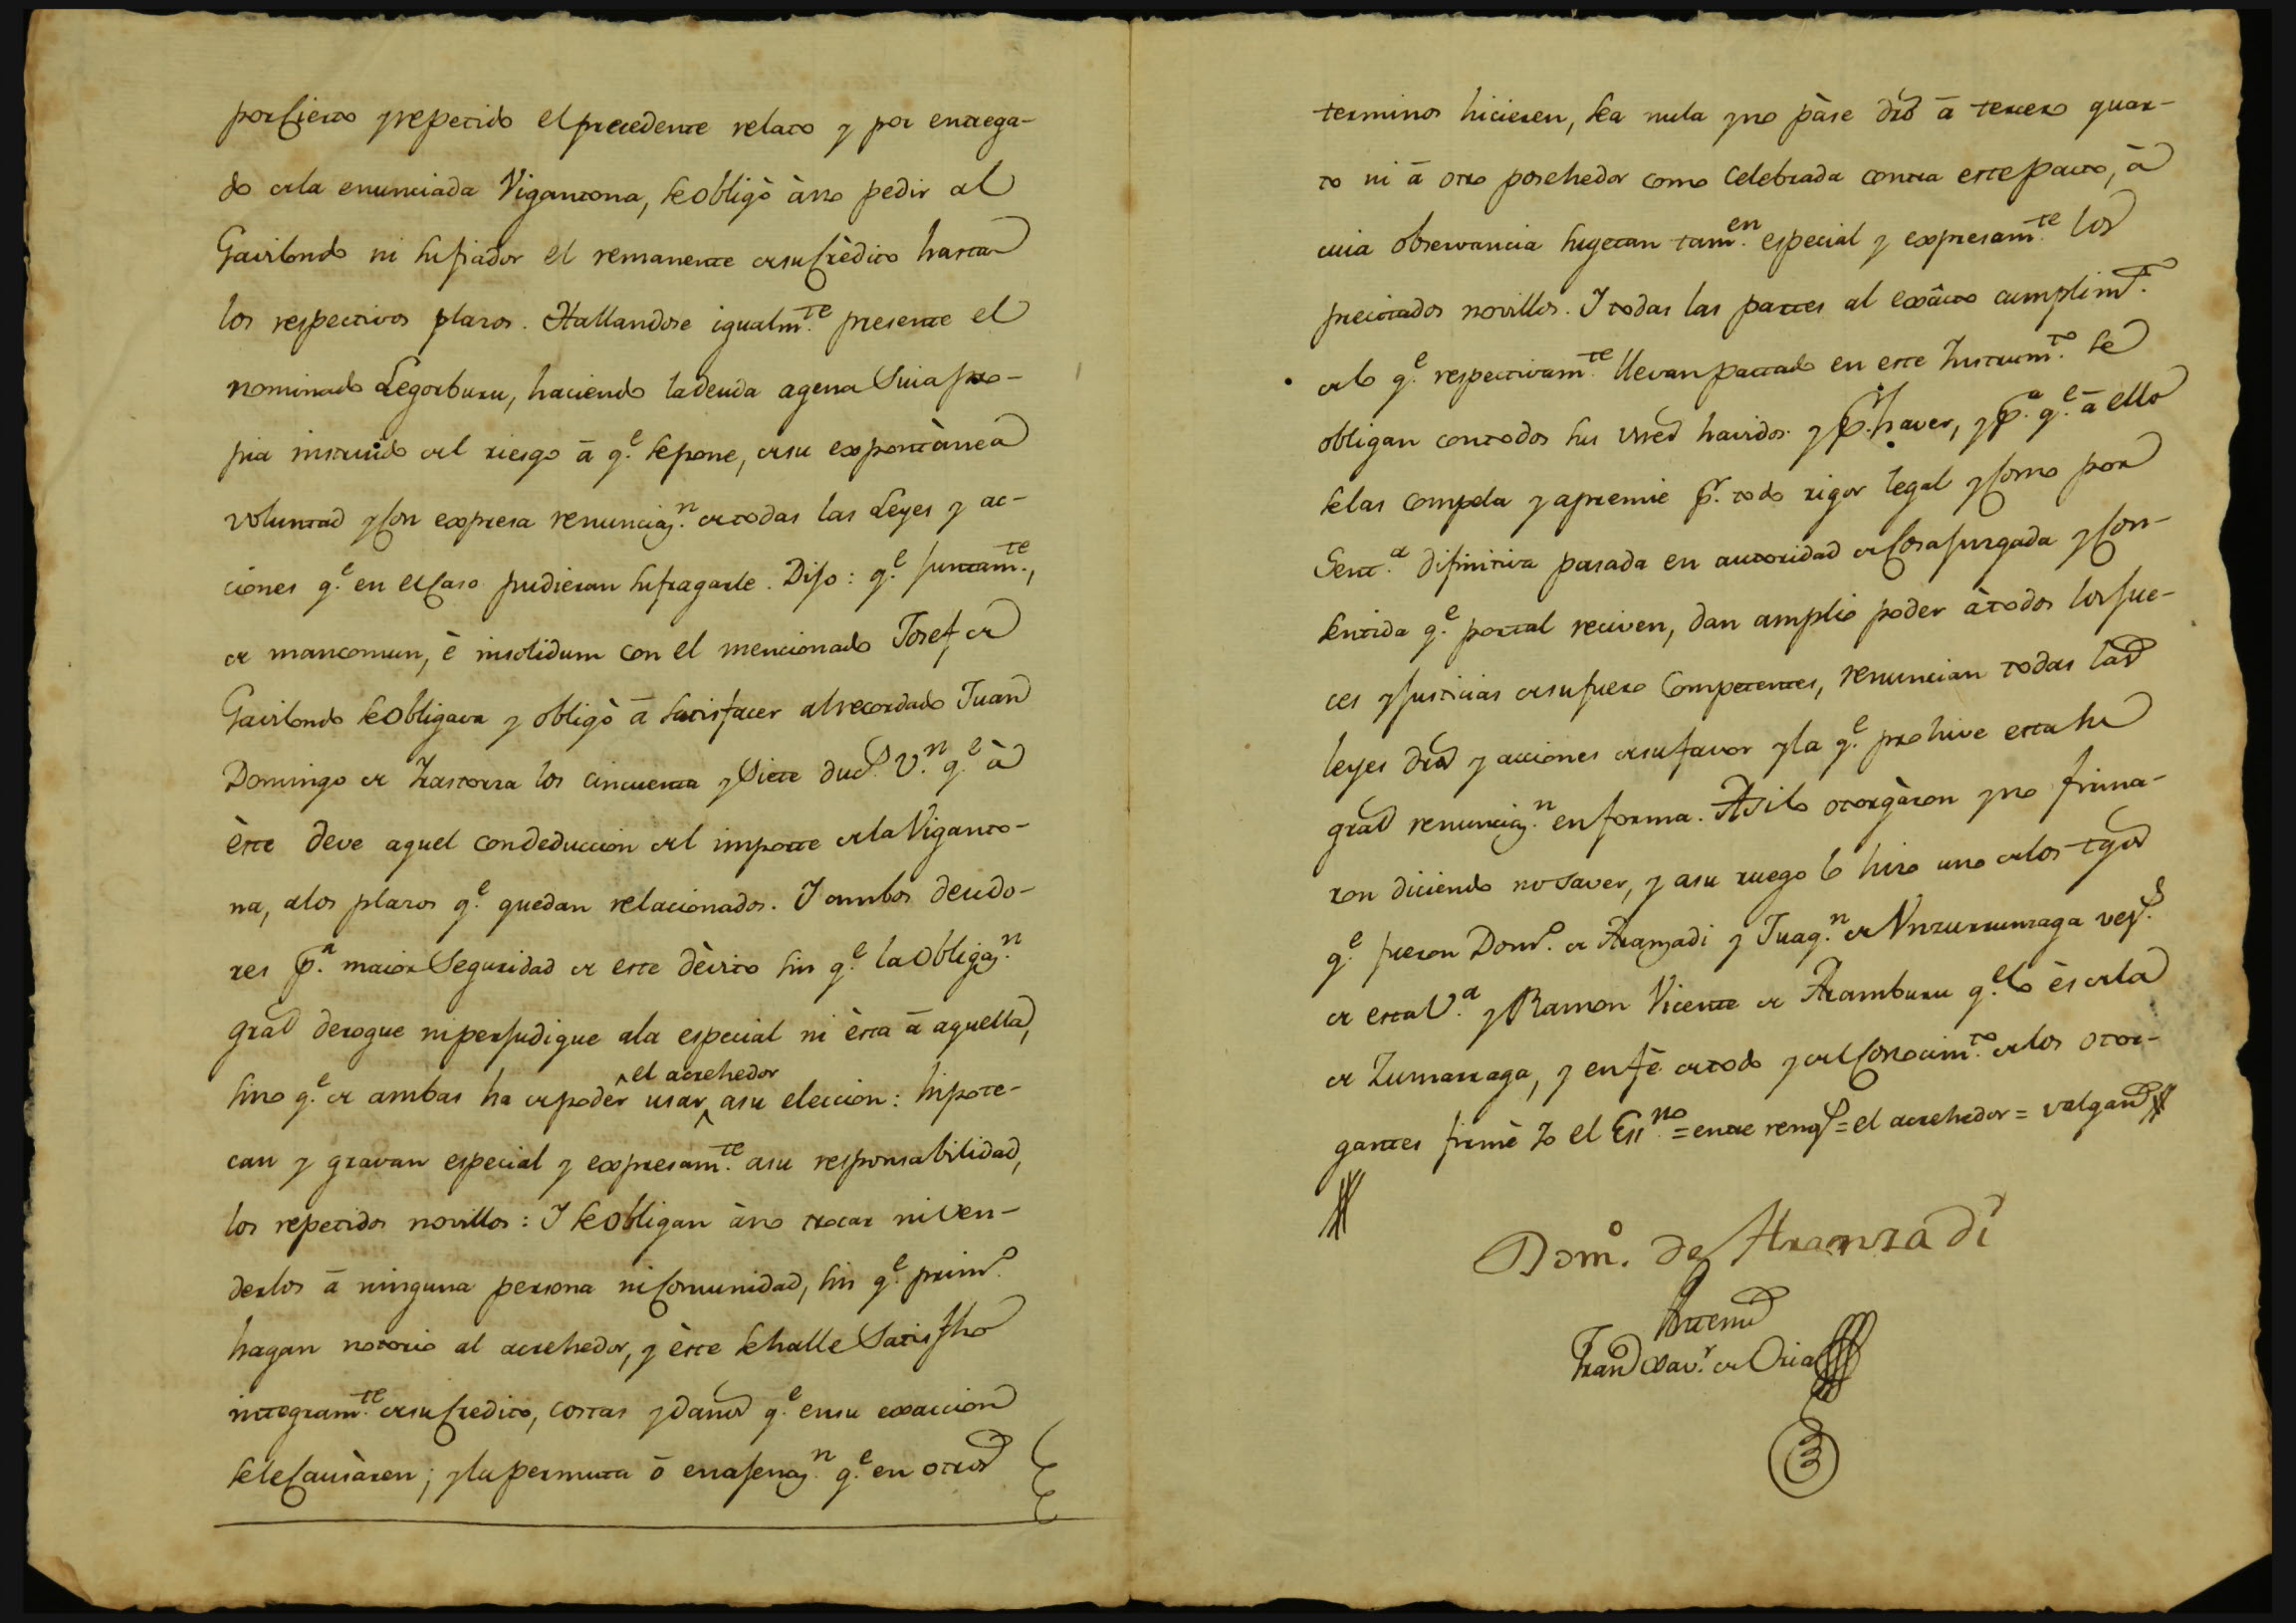 por Cierto y repetido el precedente relato y por entrega-
do de la enunciada Vigantona, se obligò à no pedir al
Gavilondo ni su fiador el remanente de su Crèdito hasta
los respectivos plazos. Hallandose igualm.te presente el
nominado Legorburu, haciendo la deuda agena Suia pro-
pia instruido del riesgo ā q.e se pone, de su expontànea
voluntad y Con expresa renunciaz.n de todas las Leyes y ac-
ciones q.e en el Caso pudieran sufragarle. Dijo: q.e juntam.te,
de mancomun, è insolidum con el mencionado Josef de
Gavilondo se obligava y obligò ā satisfacer al recordado Juan
Domingo de Irastorza los cincuenta y Siete duc.s V.n q.e à
èste deve aquel con deduccion del importe de la Viganto-
na, a los plazos q.e quedan relacionados. I ambos deudo-
res p.a maior Seguridad de este dèvito sin q.e la Obligaz.n
gral derogue ni perjudique a la especial ni èsta ā aquella,
sino q.e de ambas ha de poder usar ^el acrehedor^ a su eleccion: hipote-
can y gravan especial y expresam.te a su responsabilidad,
los repetidos novillos: I se obligan à no trocar ni ven-
derlos ā ninguna persona ni Comunidad, sin q.e prim.o
hagan notorio al acrehedor, y èste se halle Satisfho
integram.te de su Credito, costas y daños q.e en su exaccion
se le Causàren; y la permuta ō enajenaz.n q.e en otros
terminos hicieren, sea nula y no pàse dro ā tercero quar-
to ni ā otro posehedor como Celebrada contra este pacto, à
cuia observancia sugetan tam.en especial y expresam.te los
precitados novillos. I todas las partes al exâcto cumplim.to
de lo q.e respectivam.te llevan pactado en este Instrum.to se
obligan con todos sus vnes havidos y p.r haver, y p.a q.e ā ello
se las compela y apremie p.r todo rigor legal y Como por
Sent.a difinitiva pasada en autoridad de Cosa juzgada y Con-
sentida q.e por tal reciven, dan amplio poder à todos los jue-
ces y justicias de su fuero Competentes, renuncian todas las
leyes dros y acciones de su favor y la q.e prohive esta su
gral renunciaz.n en forma. Asi lo otorgàron y no firma-
ron diciendo no saver, y a su ruego lo hizo uno de los tgos
q.e fueron Dom.o de Aranzadi y Juaq.n de Vnzurrunzaga vez.s
de esta V.a y Ramon Vicente de Aramburu q.e lo ès de la
de Zumarraga, y en fè de todo y del Conocim.to de los otor-
gantes firmè Yo el Ess.no = entre reng.s = el acrehedor = valgan
Dom.o de Aranzadi
Antemi
Fran Xav.r de Oria